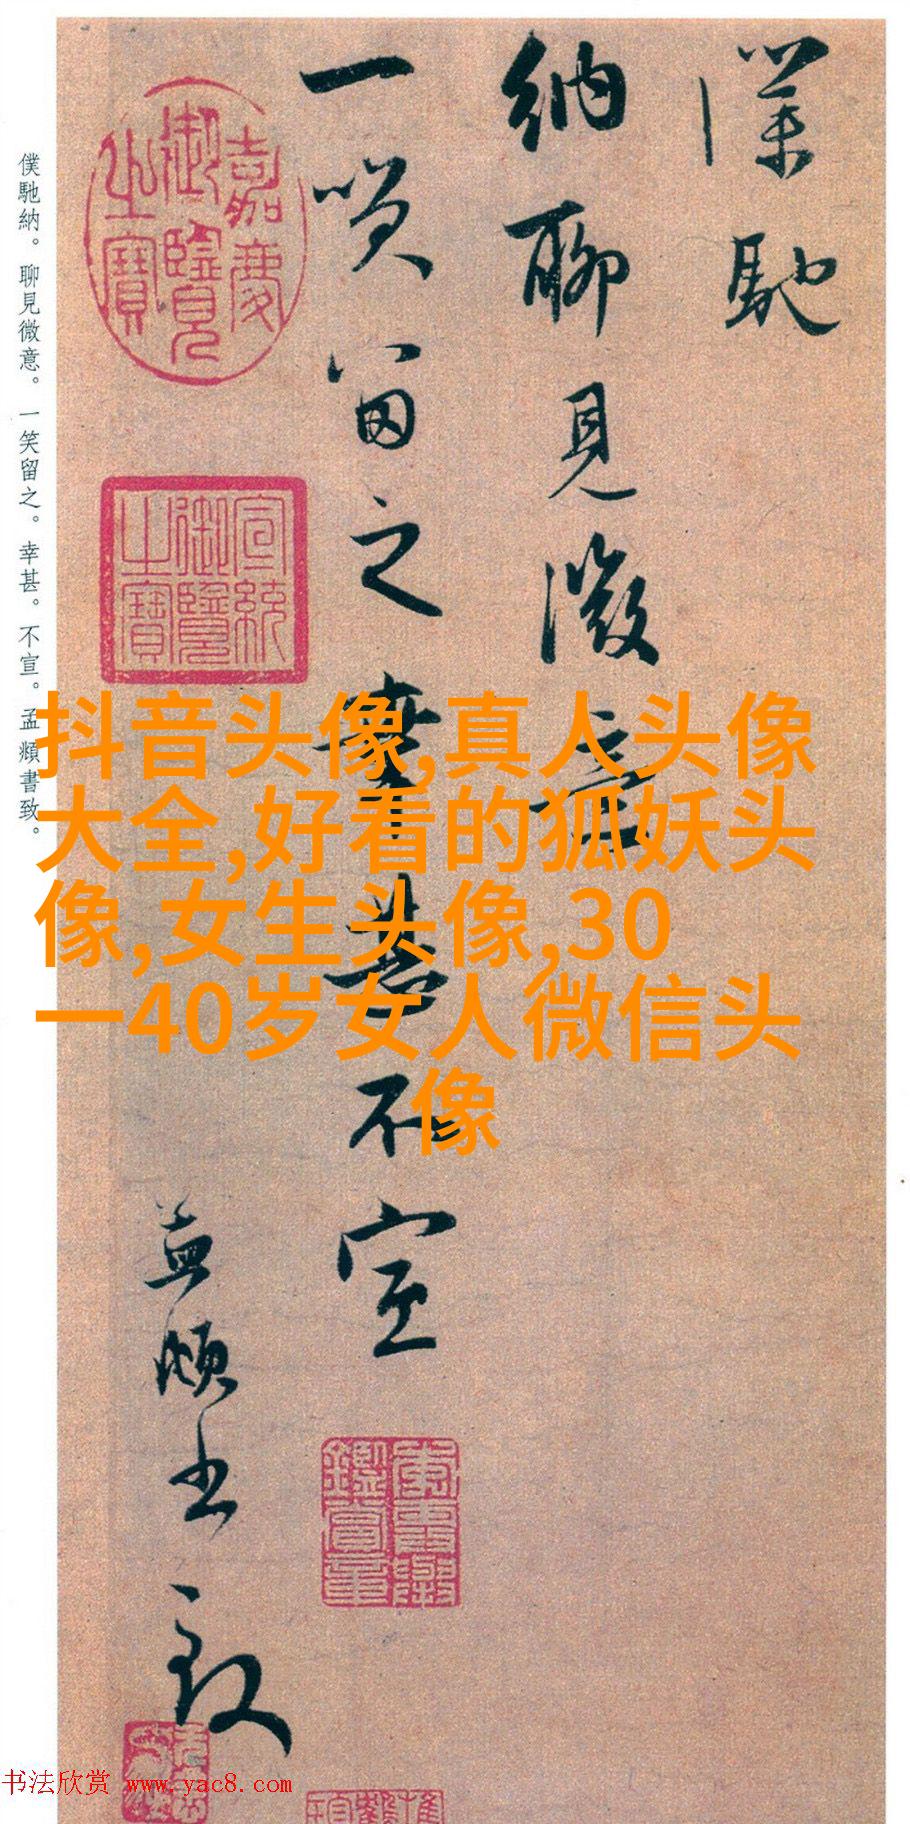 僕馳
納聊見微意
一笑留之幸甚不宣
孟頫書致
嘉慶御覽之寶
宣統御覽之寶
僕馳納。聊見微意。一笑留之。幸甚。不宣。孟頫書致。
抖音头像,真人头像
大全,好看的狐妖头
像,女生头像,30
一40岁女人微信头
像
书法欣赏 www.yac8.com